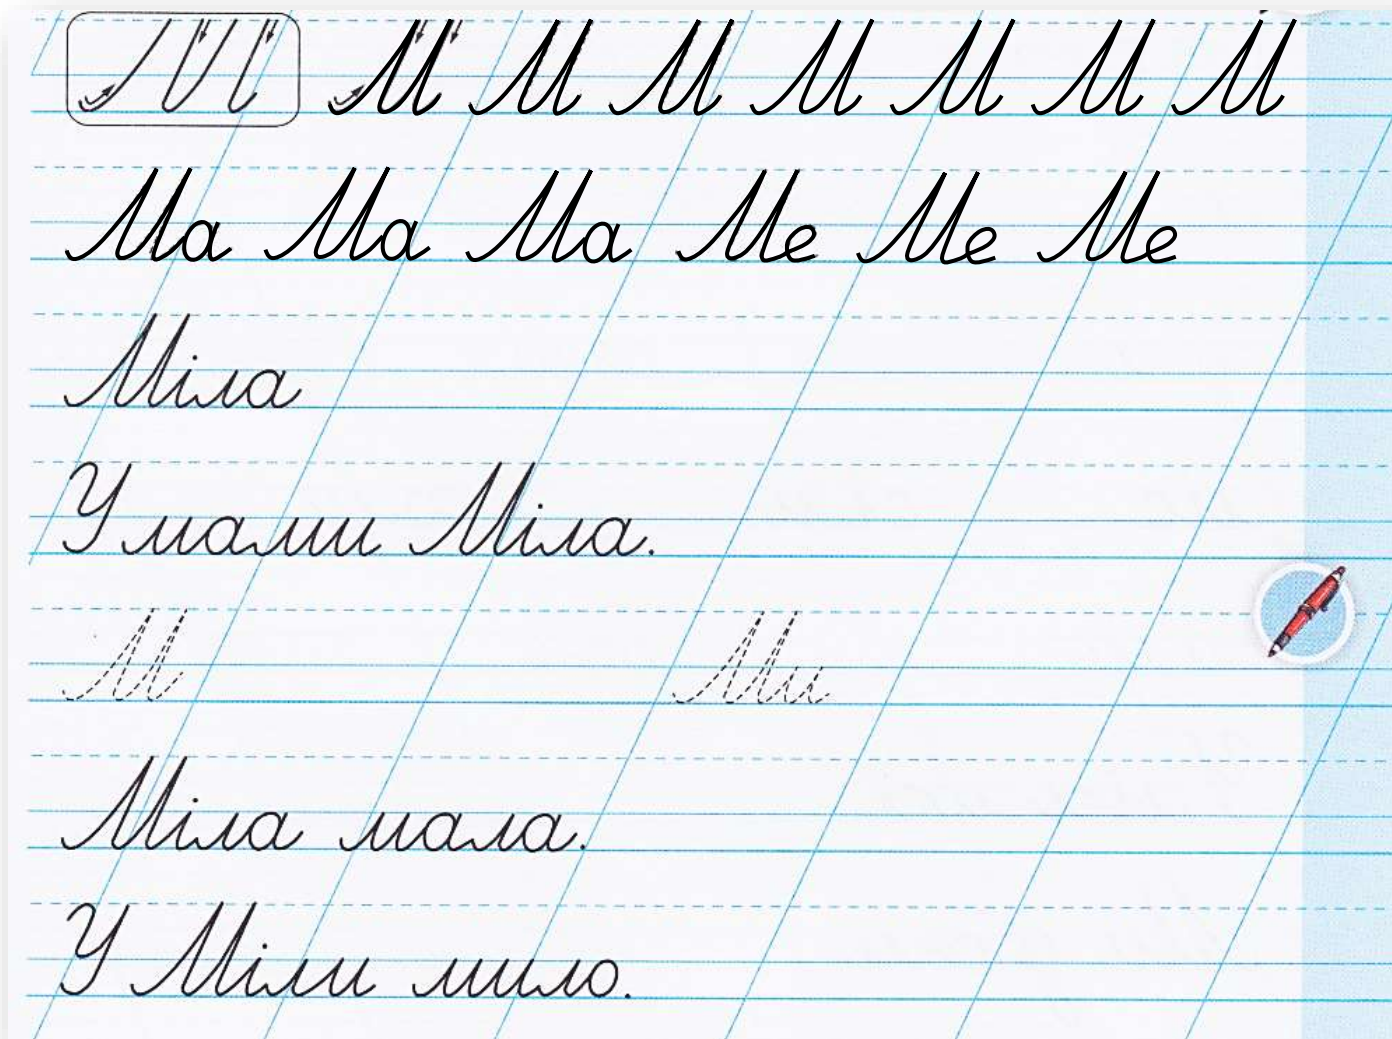 М М М М М М М М
Ма Ма Ма Ме Ме Ме
Міла
У мами Міла.
М Ми
Міла мала.
У Міли мило.